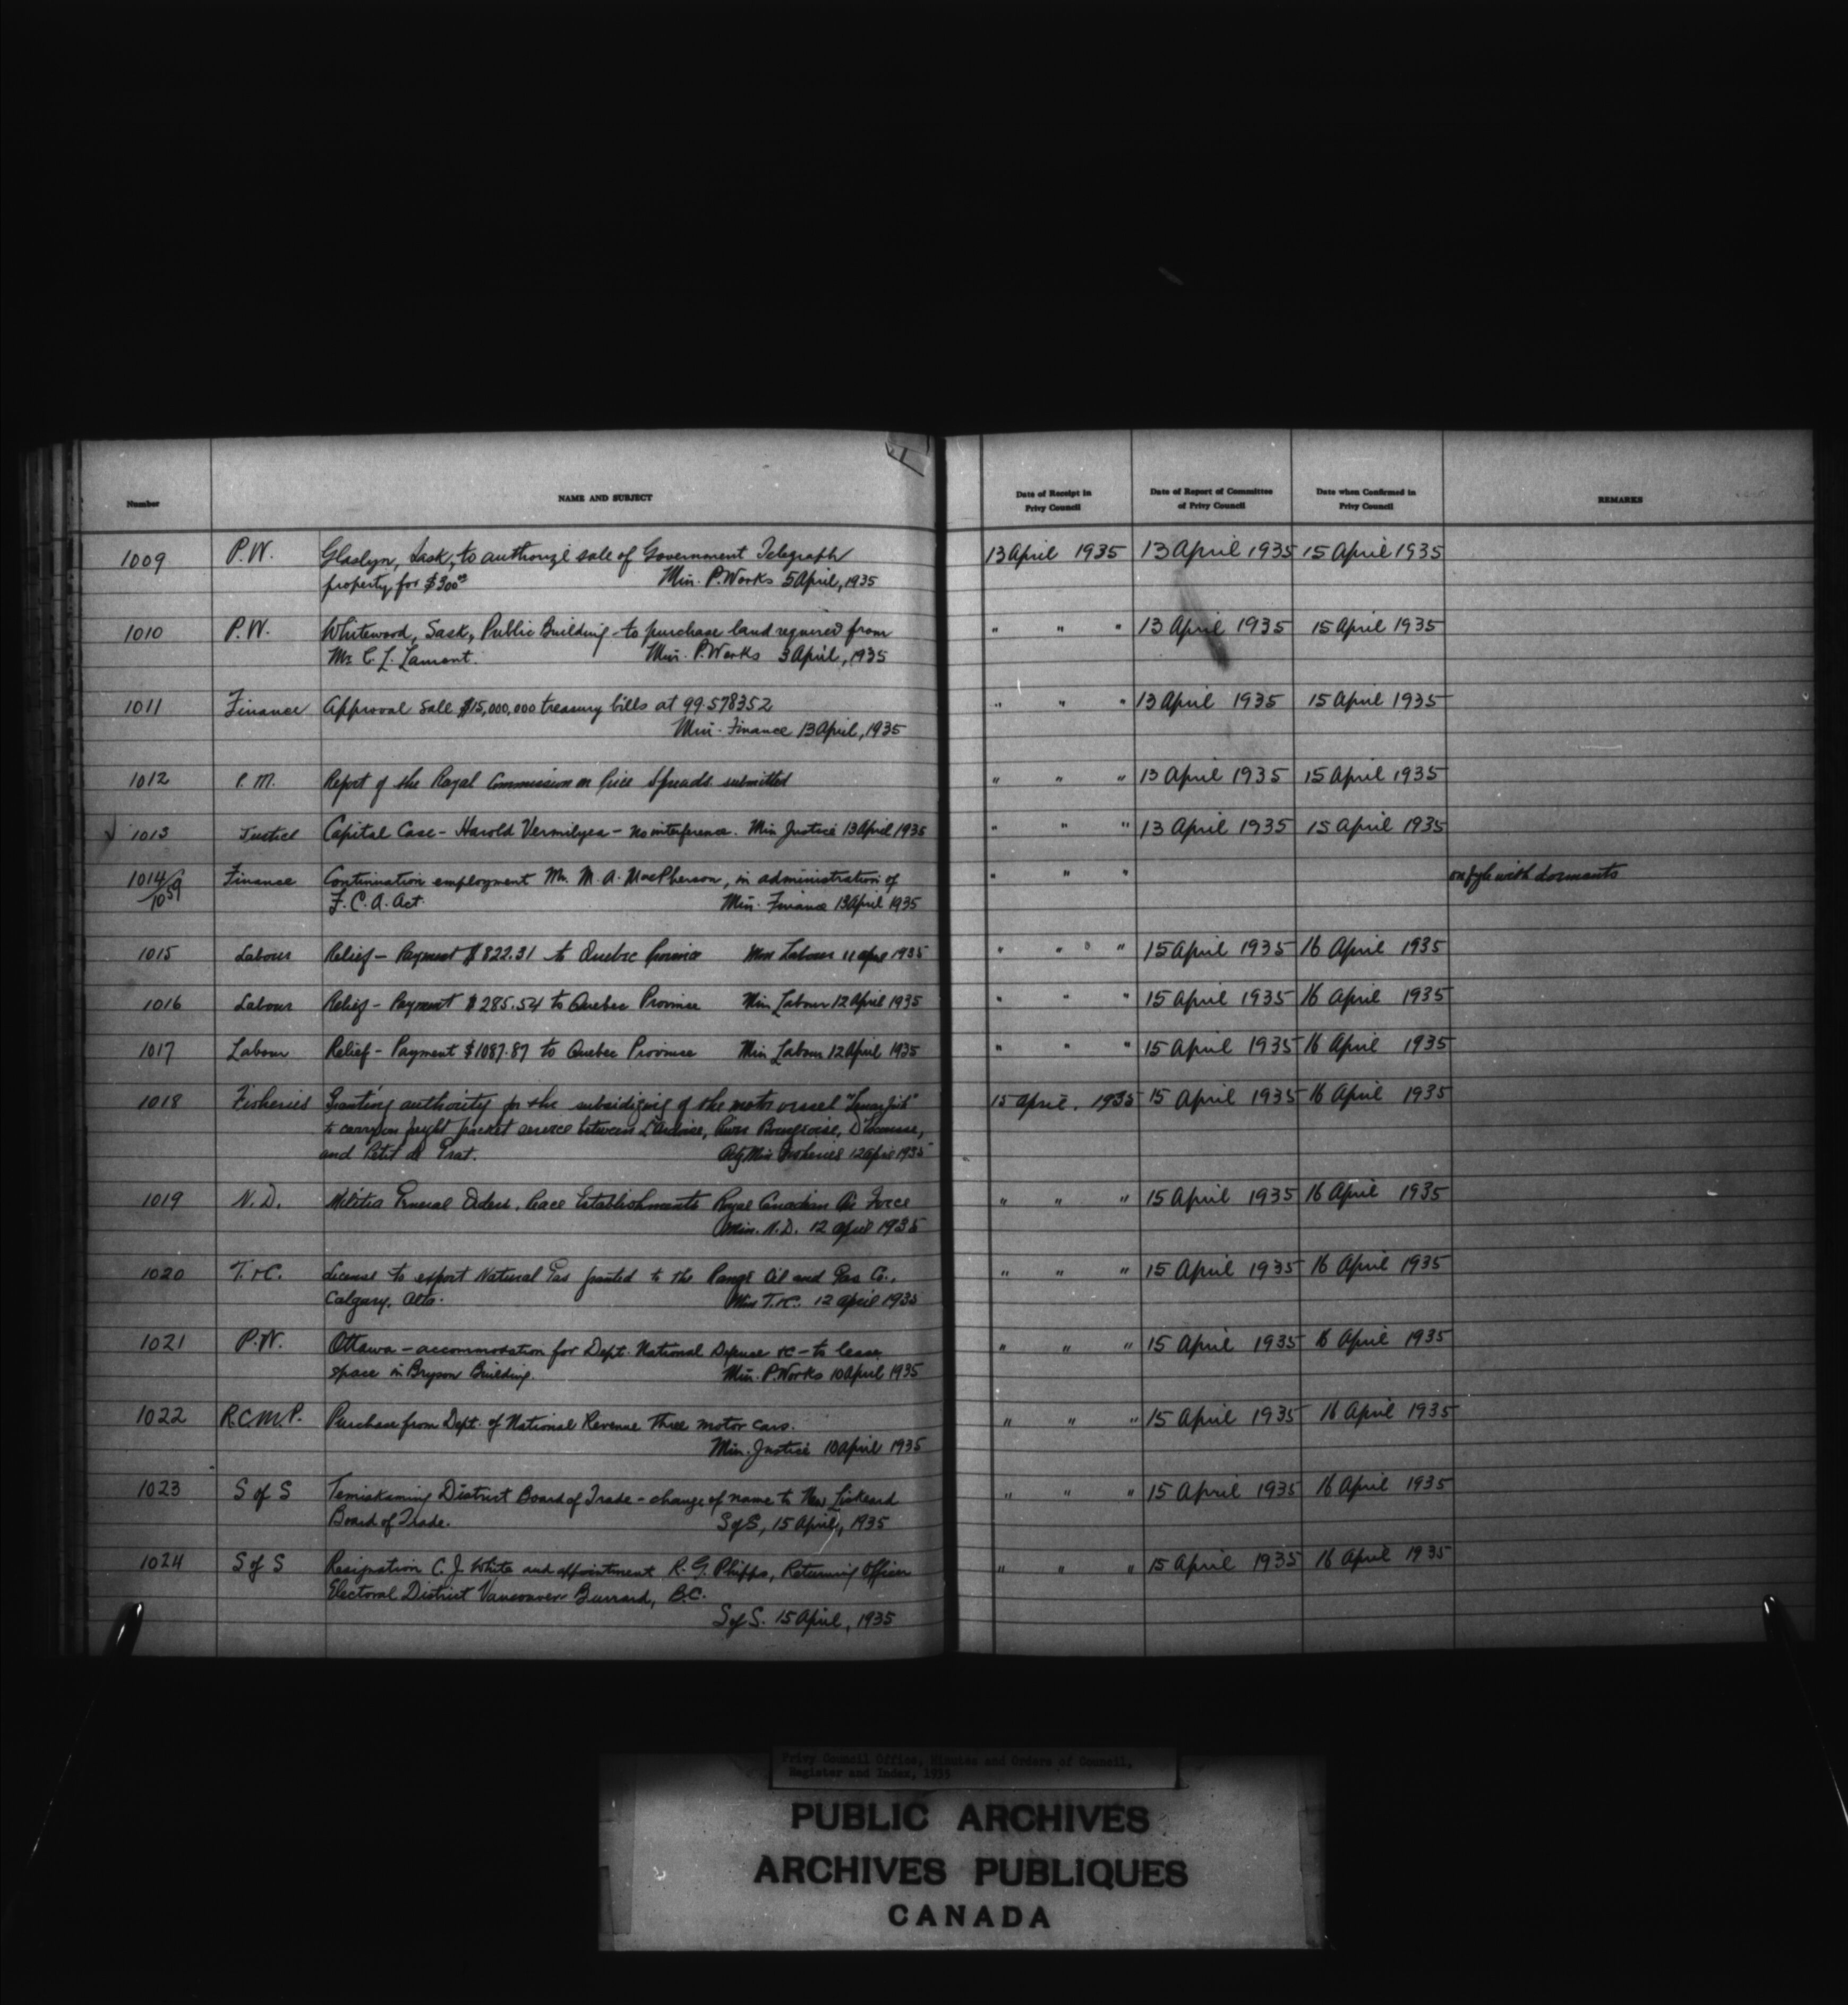 Number
NAME AND SUBJECT
Date of Receipt in Privy Council
Date of Report of Committee of Privy Council
Date when Confirmed in Privy Council
REMARKS
1009 P.W. Glaslyn, Sask, to authorize sale of Government Telegraph 13 April 1935 13 April 1935 15 April 1935
property for $300 Min. P. Works 5 April, 1935
1010 P.W. Whitewood, Sask, Public Building - to purchase land required from " " " 13 April 1935 15 April 1935
Mr C. L. Lamont. Min. P. Works 3 April, 1935
1011 Finance Approval sale $15,000,000 treasury bills at 99.578352 " " " 13 April 1935 15 April 1935
Min. Finance 13 April, 1935
1012 P.M. Report of the Royal Commission on Price Spreads submitted " " " 13 April 1935 15 April 1935
1013 Justice Capital Case - Harold Vermilyea - no interference. Min Justice 13 April 1935 " " " 13 April 1935 15 April 1935
1014 Finance Continuation employment Mr. M. A. MacPherson, in administration of " " " on fyle with dormants
1059 F. C. A. Act. Min. Finance 13 April 1935
1015 Labour Relief - Payment $822.31 to Quebec Province Min Labour 11 April 1935 " " " 15 April 1935 16 April 1935
1016 Labour Relief - Payment $285.54 to Quebec Province Min Labour 12 April 1935 " " " 15 April 1935 16 April 1935
1017 Labour Relief - Payment $1087.87 to Quebec Province Min Labour 12 April 1935 " " " 15 April 1935 16 April 1935
1018 Fisheries Granting authority for the subsidizing of the motor vessel 15 April, 1935 15 April 1935 16 April 1935
to carry on freight packet service between L'Ardoise, River Bourgeoise, D'Escousse,
and Petit de Grat. Actg Min Fisheries 12 April 1935
1019 N.D. Militia General Orders, Peace Establishments Royal Canadian Air Force " " " 15 April 1935 16 April 1935
Min. N.D. 12 April 1935
1020 T. & C. License to export Natural Gas granted to the Range Oil and Gas Co., " " " 15 April 1935 16 April 1935
Calgary, Alta. Min T. & C. 12 April 1935
1021 P.W. Ottawa - accommodation for Dept. National Defence &c - to lease " " " 15 April 1935 16 April 1935
space in Bryson Building. Min. P. Works 10 April 1935
1022 R.C.M.P. Purchase from Dept. of National Revenue three motor cars. " " " 15 April 1935 16 April 1935
Min. Justice 10 April 1935
1023 S of S Temiskaming District Board of Trade - change of name to New Liskeard " " " 15 April 1935 16 April 1935
Board of Trade. S of S, 15 April, 1935
1024 S of S Resignation C. J. White and appointment R. G. Phipps, Returning Officer " " " 15 April 1935 16 April 1935
Electoral District Vancouver Burrard, B.C.
S of S. 15 April, 1935
Privy Council Office, Minutes and Orders of Council,
Register and Index, 1935
PUBLIC ARCHIVES
ARCHIVES PUBLIQUES
CANADA